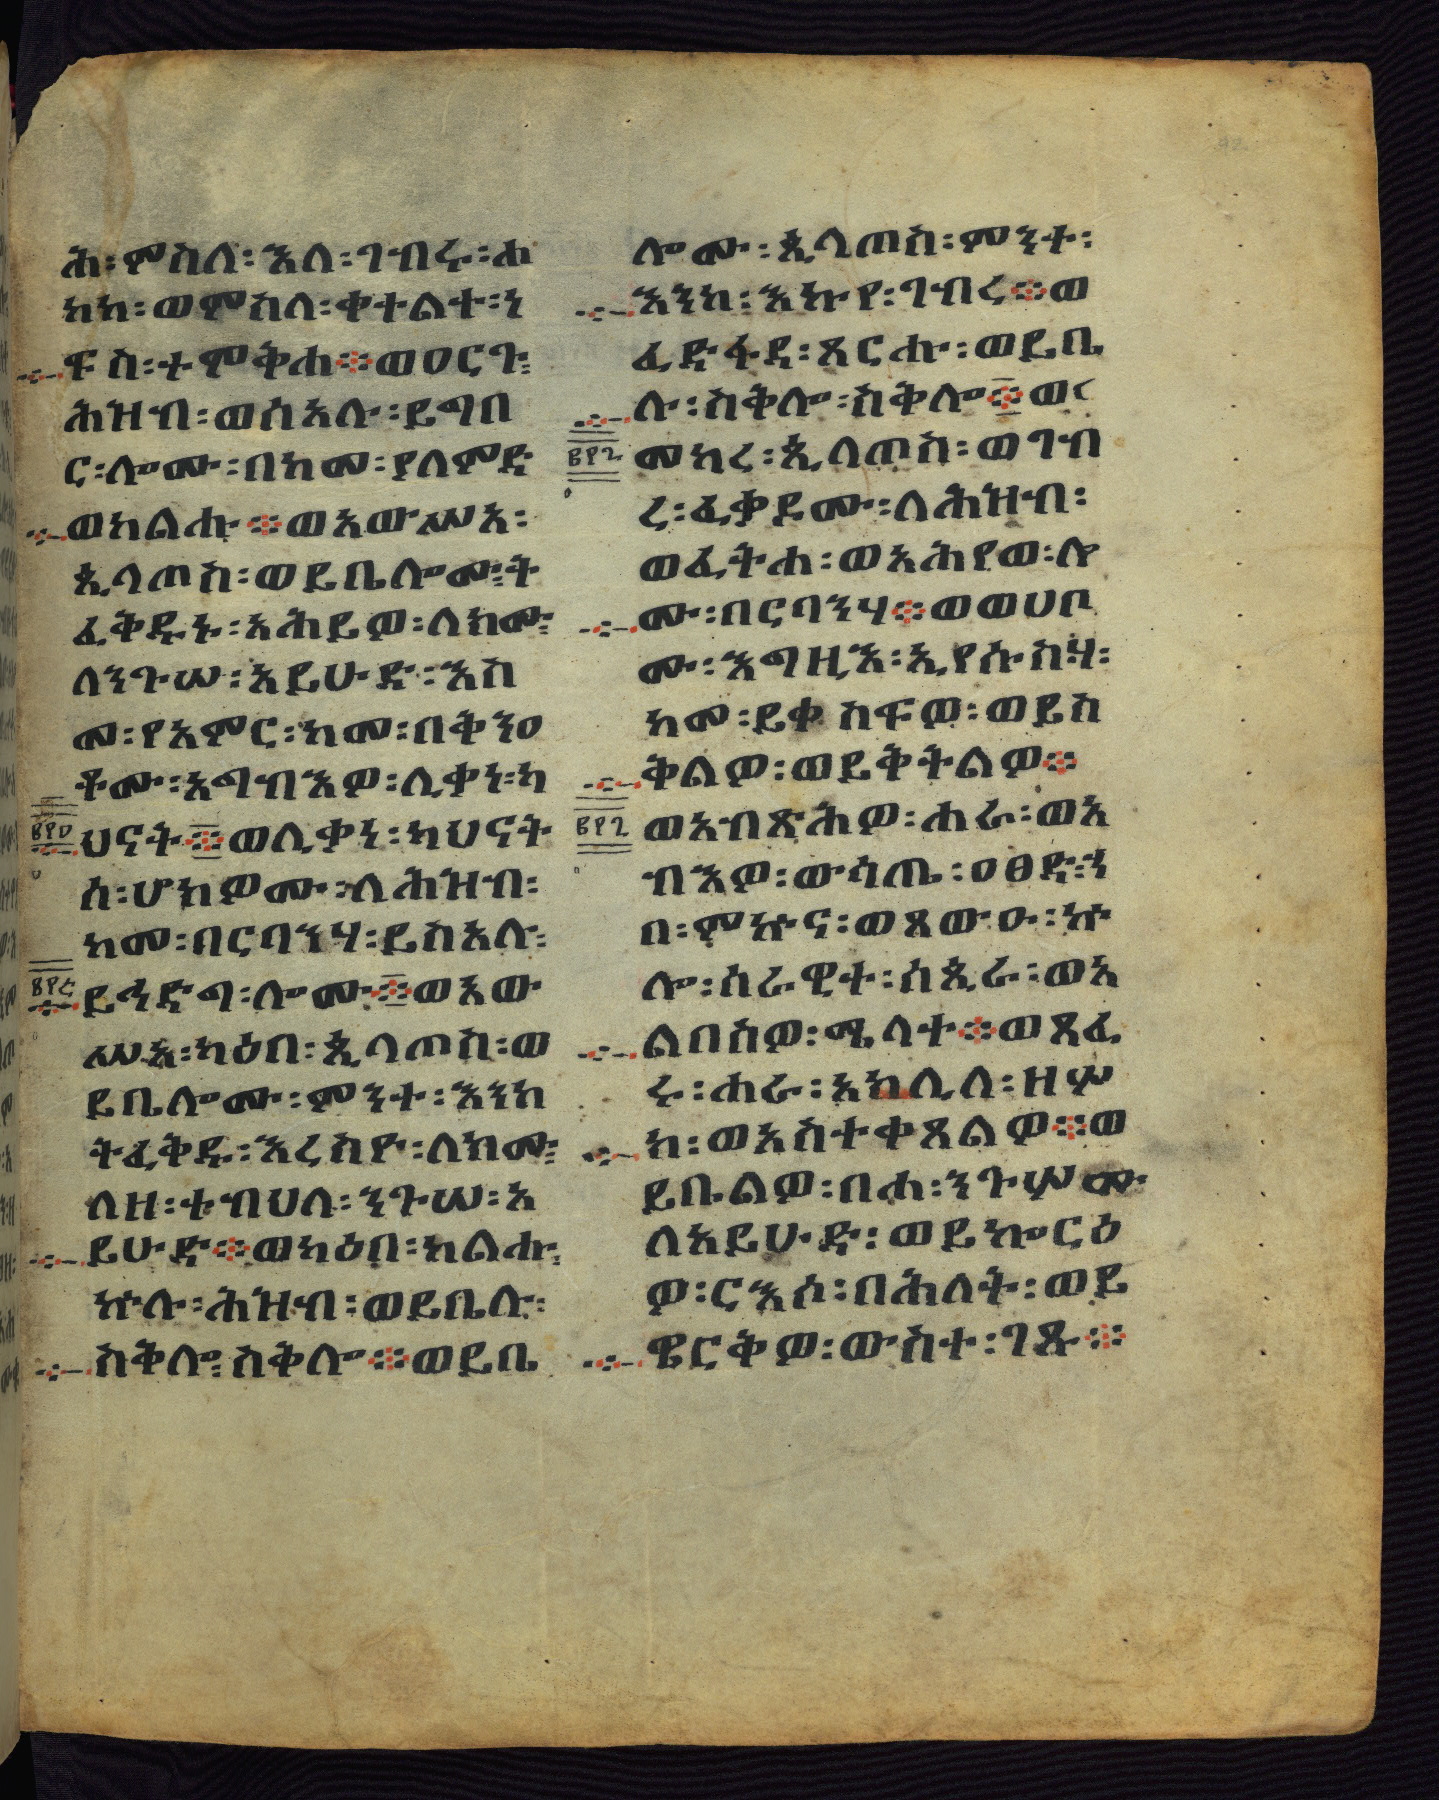 ሕ፡ምስለ፡እለ፡ገብሩ፡ሐ
ከከ፡ወምስለ፡ቀተልተ፡ነ
ፍስ፡ተሞቅሐ፨ወዐርጉ፡
ሕዝብ፡ወሰአሉ፡ይግበ
ር፡ሎሙ፡በከመ፡ያለምድ
ወከልሑ፨ወአውሥአ፡
ጲላጦስ፡ወይቤሎሙ፡ት
ፈቅዱኑ፡አሕይዎ፡ለክሙ፡
ለንጉሠ፡አይሁድ፡እስ
መ፡የአምር፡ከመ፡በቅንዐ
ቶሙ፡አግብእዎ፡ሊቀነ፡ካ
ህናት፨ወሊቃነ፡ካህናት
ሰ፡ሆክዎሙ፡ለሕዝብ፡
ከመ፡በርባንሃ፡ይስአሉ፡
ይኅድግ፡ሎሙ፨ወአው
ሥአ፡ካዕበ፡ጲላጦስ፡ወ
ይቤሎሙ፡ምንተ፡እንከ
ትፈቅዱ፡እረስዮ፡ለክሙ፡
ለዘ፡ተብህለ፡ንጉሠ፡አ
ይሁድ፨ወካዕበ፡ከልሑ፡
ኵሉ፡ሕዝብ፡ወይቤሉ፡
ስቅሎ፡ስቅሎ፨ወይቤ
፷፻፬
፷፻፭
ሎሙ፡ጲላጦስ፡ምንተ፡
እንከ፡እኩየ፡ገብረ፨ወ
ፈድፋደ፡ጸርሑ፡ወይቤ
ሉ፡ስቅሎ፡ስቅሎ፨ወ
መከረ፡ጲላጦስ፡ወገብ
ረ፡ፈቃደሙ፡ለሕዝብ፡
ወፈትሐ፡ወአሕየወ፡ሎ
ሙ፡በርባንሃ፨ወወሀቦ
ሙ፡እግዚእ፡ኢየሱስሃ፡
ከመ፡ይቀስፍዎ፡ወይስ
ቅልዎ፡ወይቅትልዎ፨
ወአብጽሕዎ፡ሐራ፡ወአ
ብእዎ፡ውሳጤ፡ዐፀደ፡ኀ
በ፡ምኵናን፡ወጸውዑ፡ኵ
ሎ፡ሰራዊተ፡ሰጲራ፡ወአ
ልበስዎ፡ሜላተ፨ወጸፈ
ሩ፡ሐራ፡አክሊለ፡ዘሦ
ክ፡ወአስተቀጸልዎ፨ወ
ይቤልዎ፡በሐ፡ንጉሦሙ
ለአይሁድ፡ወይኰርዕ
ዎ፡ርእሶ፡በሕለት፡ወይ
ዌርቅዎ፡ውስተ፡ገጹ፨